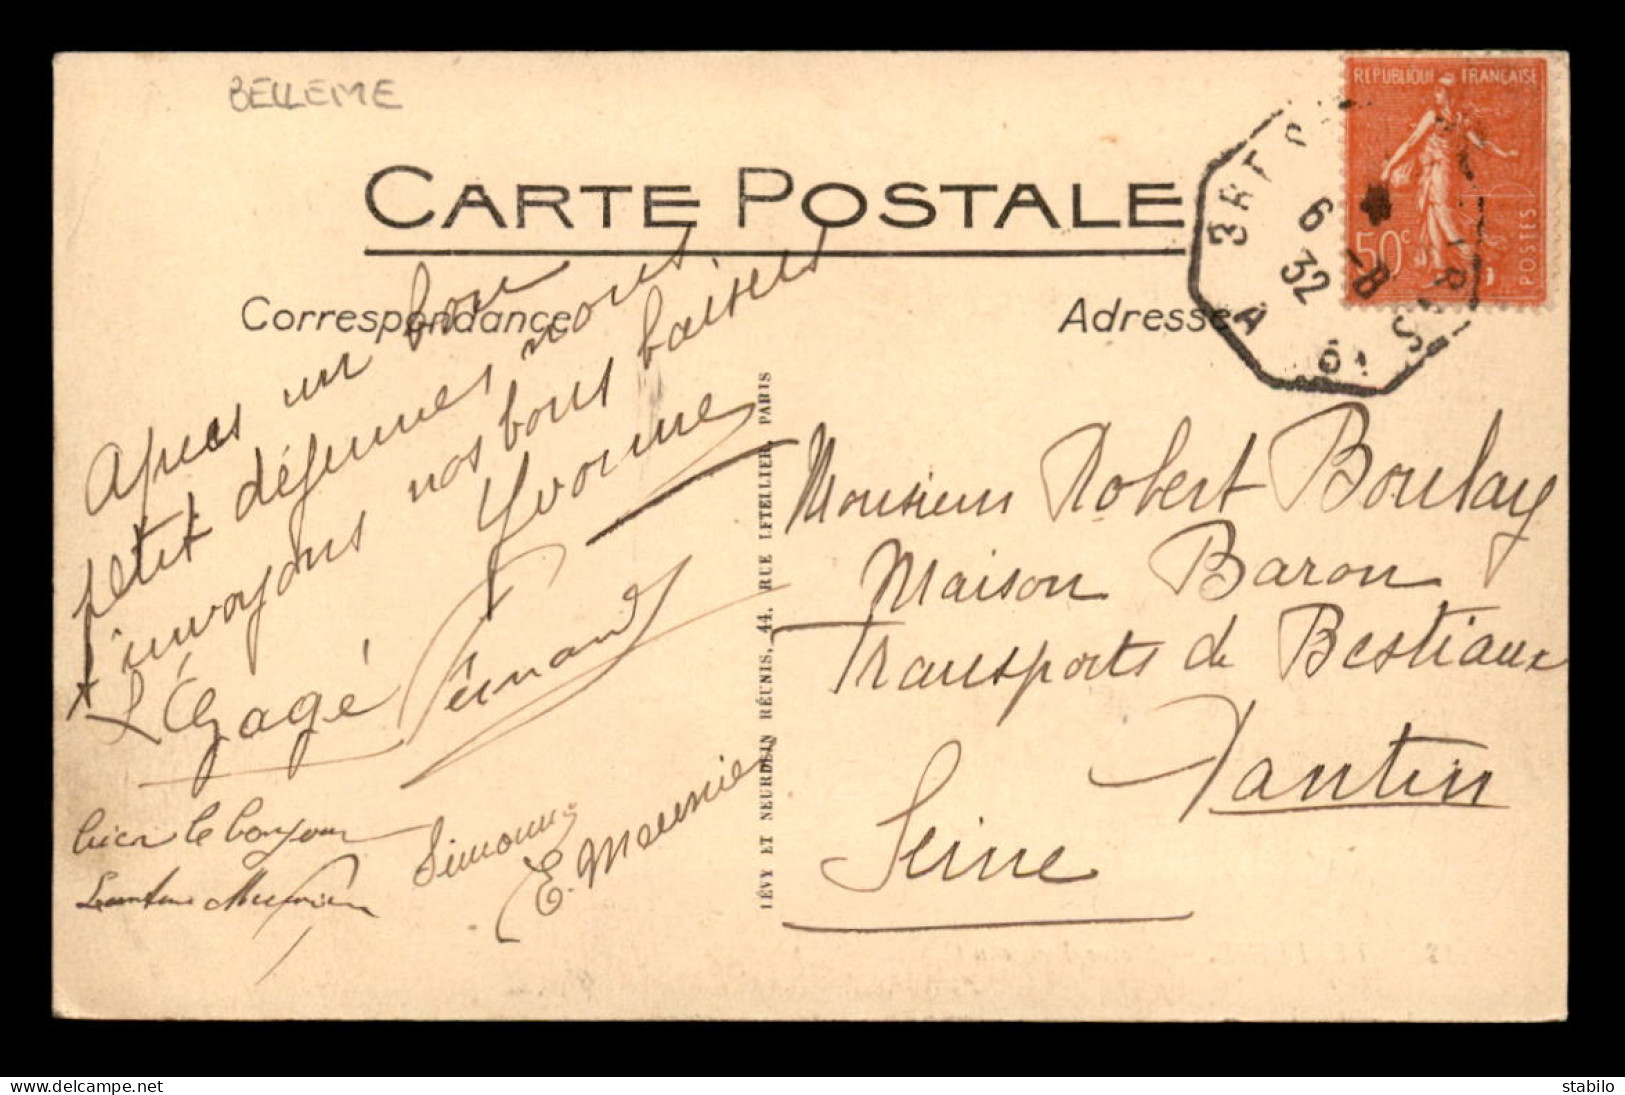 BELLEME
REPUBLIQUE FRANÇAISE
50c
POSTES
6 -8
32
A
CARTE POSTALE
Correspondance
Adresse
Après un bon
petit déjeuner nous
t'envoyons nos bons baisers
Yvonne
L'Égagé Fernand
bien le bonjour
Simonne
E. Meunier
LÉVY ET NEURDEIN RÉUNIS, 44, RUE LETELLIER, PARIS
Monsieur Robert Boulay
Maison Baron
Transports de Bestiaux
Pantin
Seine
stabilo